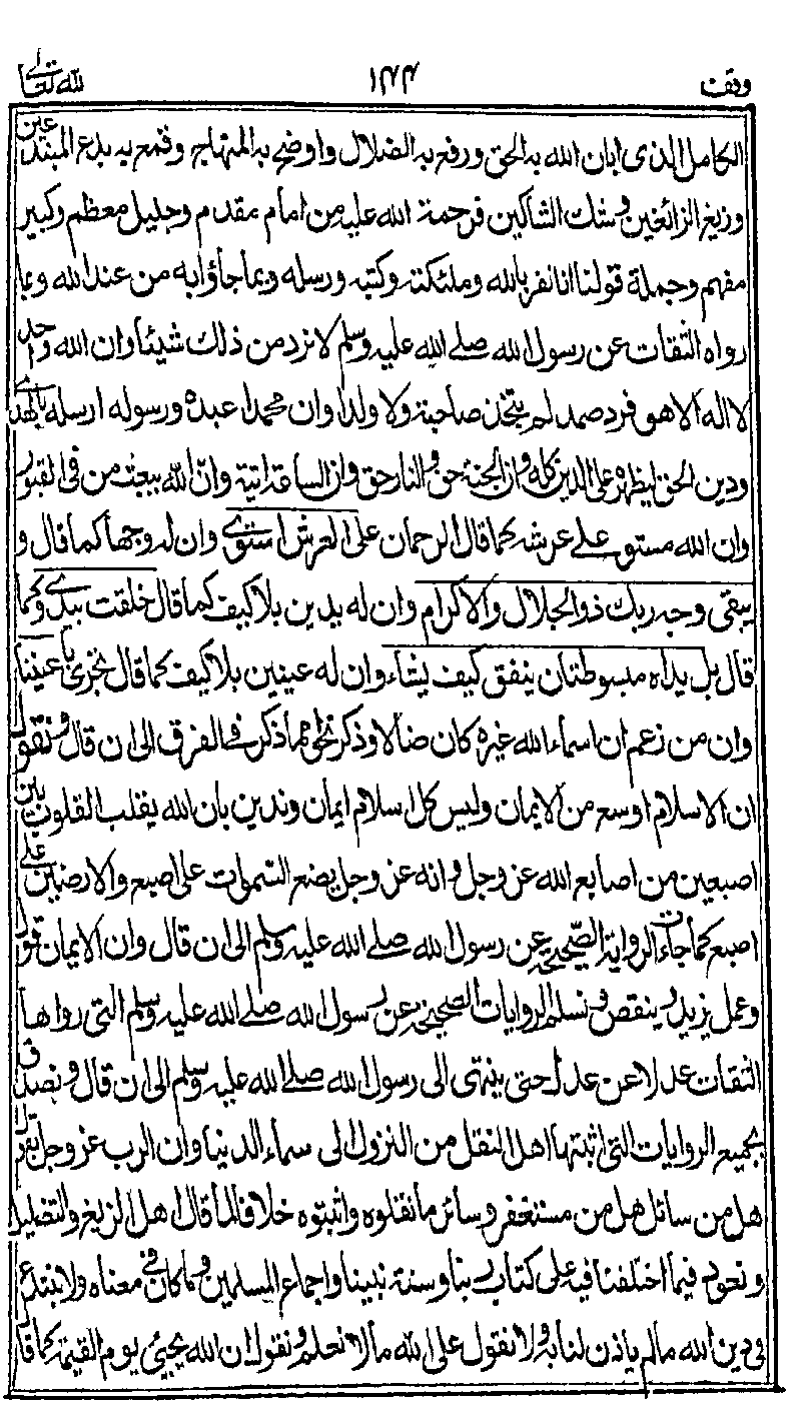 وقف ١٤٤ لله تعالى
الكامل الذى ابان الله به الحق ورفع به الضلال واوضح به المنهاج وقمع به بدع المبتدعين
وزيغ الزائغين وشك الشاكين فرحمة الله عليه من امام مقدم وجليل معظم وكبير
مفهم وجملة قولنا انا نقر بالله وملئكته وكتبه ورسله وبما جاؤا به من عند الله وبما
رواه الثقات عن رسول الله صلى الله عليه وسلم لا نرد من ذلك شيئا وان الله واحد
لا اله الا هو فرد صمد لم يتخذ صاحبة ولا ولدا وان محمدا عبده ورسوله ارسله بالهدى
ودين الحق ليظهره على الدين كله وان الجنة حق والنار حق وان الساعة اتية وان الله يبعث من فى القبور
وان الله مستو على عرشه كما قال الرحمان على العرش استوى وان له وجها كما قال و
يبقى وجه ربك ذو الجلال والاكرام وان له يدين بلا كيف كما قال خلقت بيدى وكما
قال بل يداه مبسوطتان ينفق كيف يشاء وان له عينين بلا كيف كما قال تجرى باعيننا
وان من زعم ان اسماء الله غيره كان ضالا وذكر نحو مما ذكر فى الفرق الى ان قال ونقول
ان الاسلام اوسع من الايمان وليس كل اسلام ايمان وندين بان الله يقلب القلوب بين
اصبعين من اصابع الله عز وجل وانه عز وجل يضع السموات على اصبع والارضين على
اصبع كما جاءت الرواية الصحيحة عن رسول الله صلى الله عليه وسلم الى ان قال وان الايمان قول
وعمل يزيد وينقص ونسلم الروايات الصحيحة عن رسول الله صلى الله عليه وسلم التى رواها
الثقات عدلا عن عدل حتى ينتهى الى رسول الله صلى الله عليه وسلم الى ان قال ونصدق
بجميع الروايات التى اثبتها اهل النقل من النزول الى سماء الدنيا وان الرب عز وجل يقول
هل من سائل هل من مستغفر وسائر ما نقلوه واثبتوه خلافا لما قال اهل الزيغ والتضليل
ونعود فيما اختلفنا فيه على كتاب ربنا وسنة نبينا واجماع المسلمين وما كان فى معناه ولا نبتدع
فى دين الله ما لم ياذن لنا به ولا نقول على الله ما لا نعلم ونقول ان الله يجيئ يوم القيمة كما قال